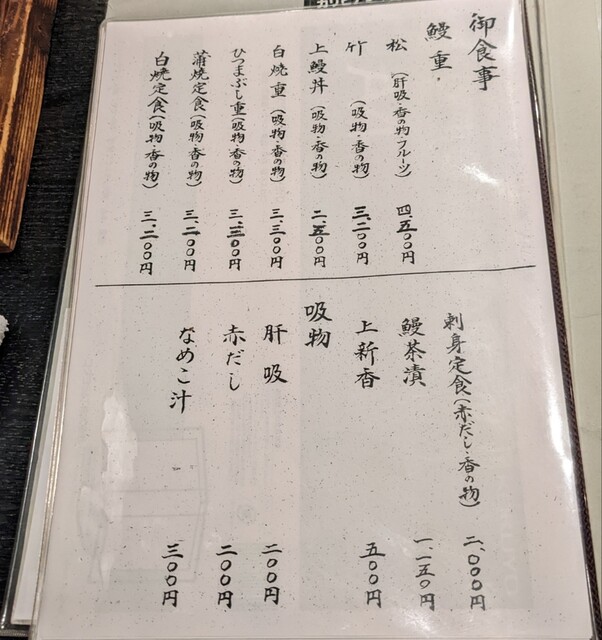 御食事
鰻重
松（肝吸・香の物フルーツ） 四、五〇〇円
竹（吸物・香の物） 三、二〇〇円
上鰻丼（吸物・香の物） 二、五〇〇円
白焼重（吸物・香の物） 三、三〇〇円
ひつまぶし重（吸物・香の物） 三、三〇〇円
蒲焼定食（吸物・香の物） 三、二〇〇円
白焼定食（吸物・香の物） 三、二〇〇円
刺身定食（赤だし・香の物） 二、〇〇〇円
鰻茶漬 一一五〇円
上新香 五〇〇円
吸物
肝吸 二〇〇円
赤だし 二〇〇円
なめこ汁 三〇〇円